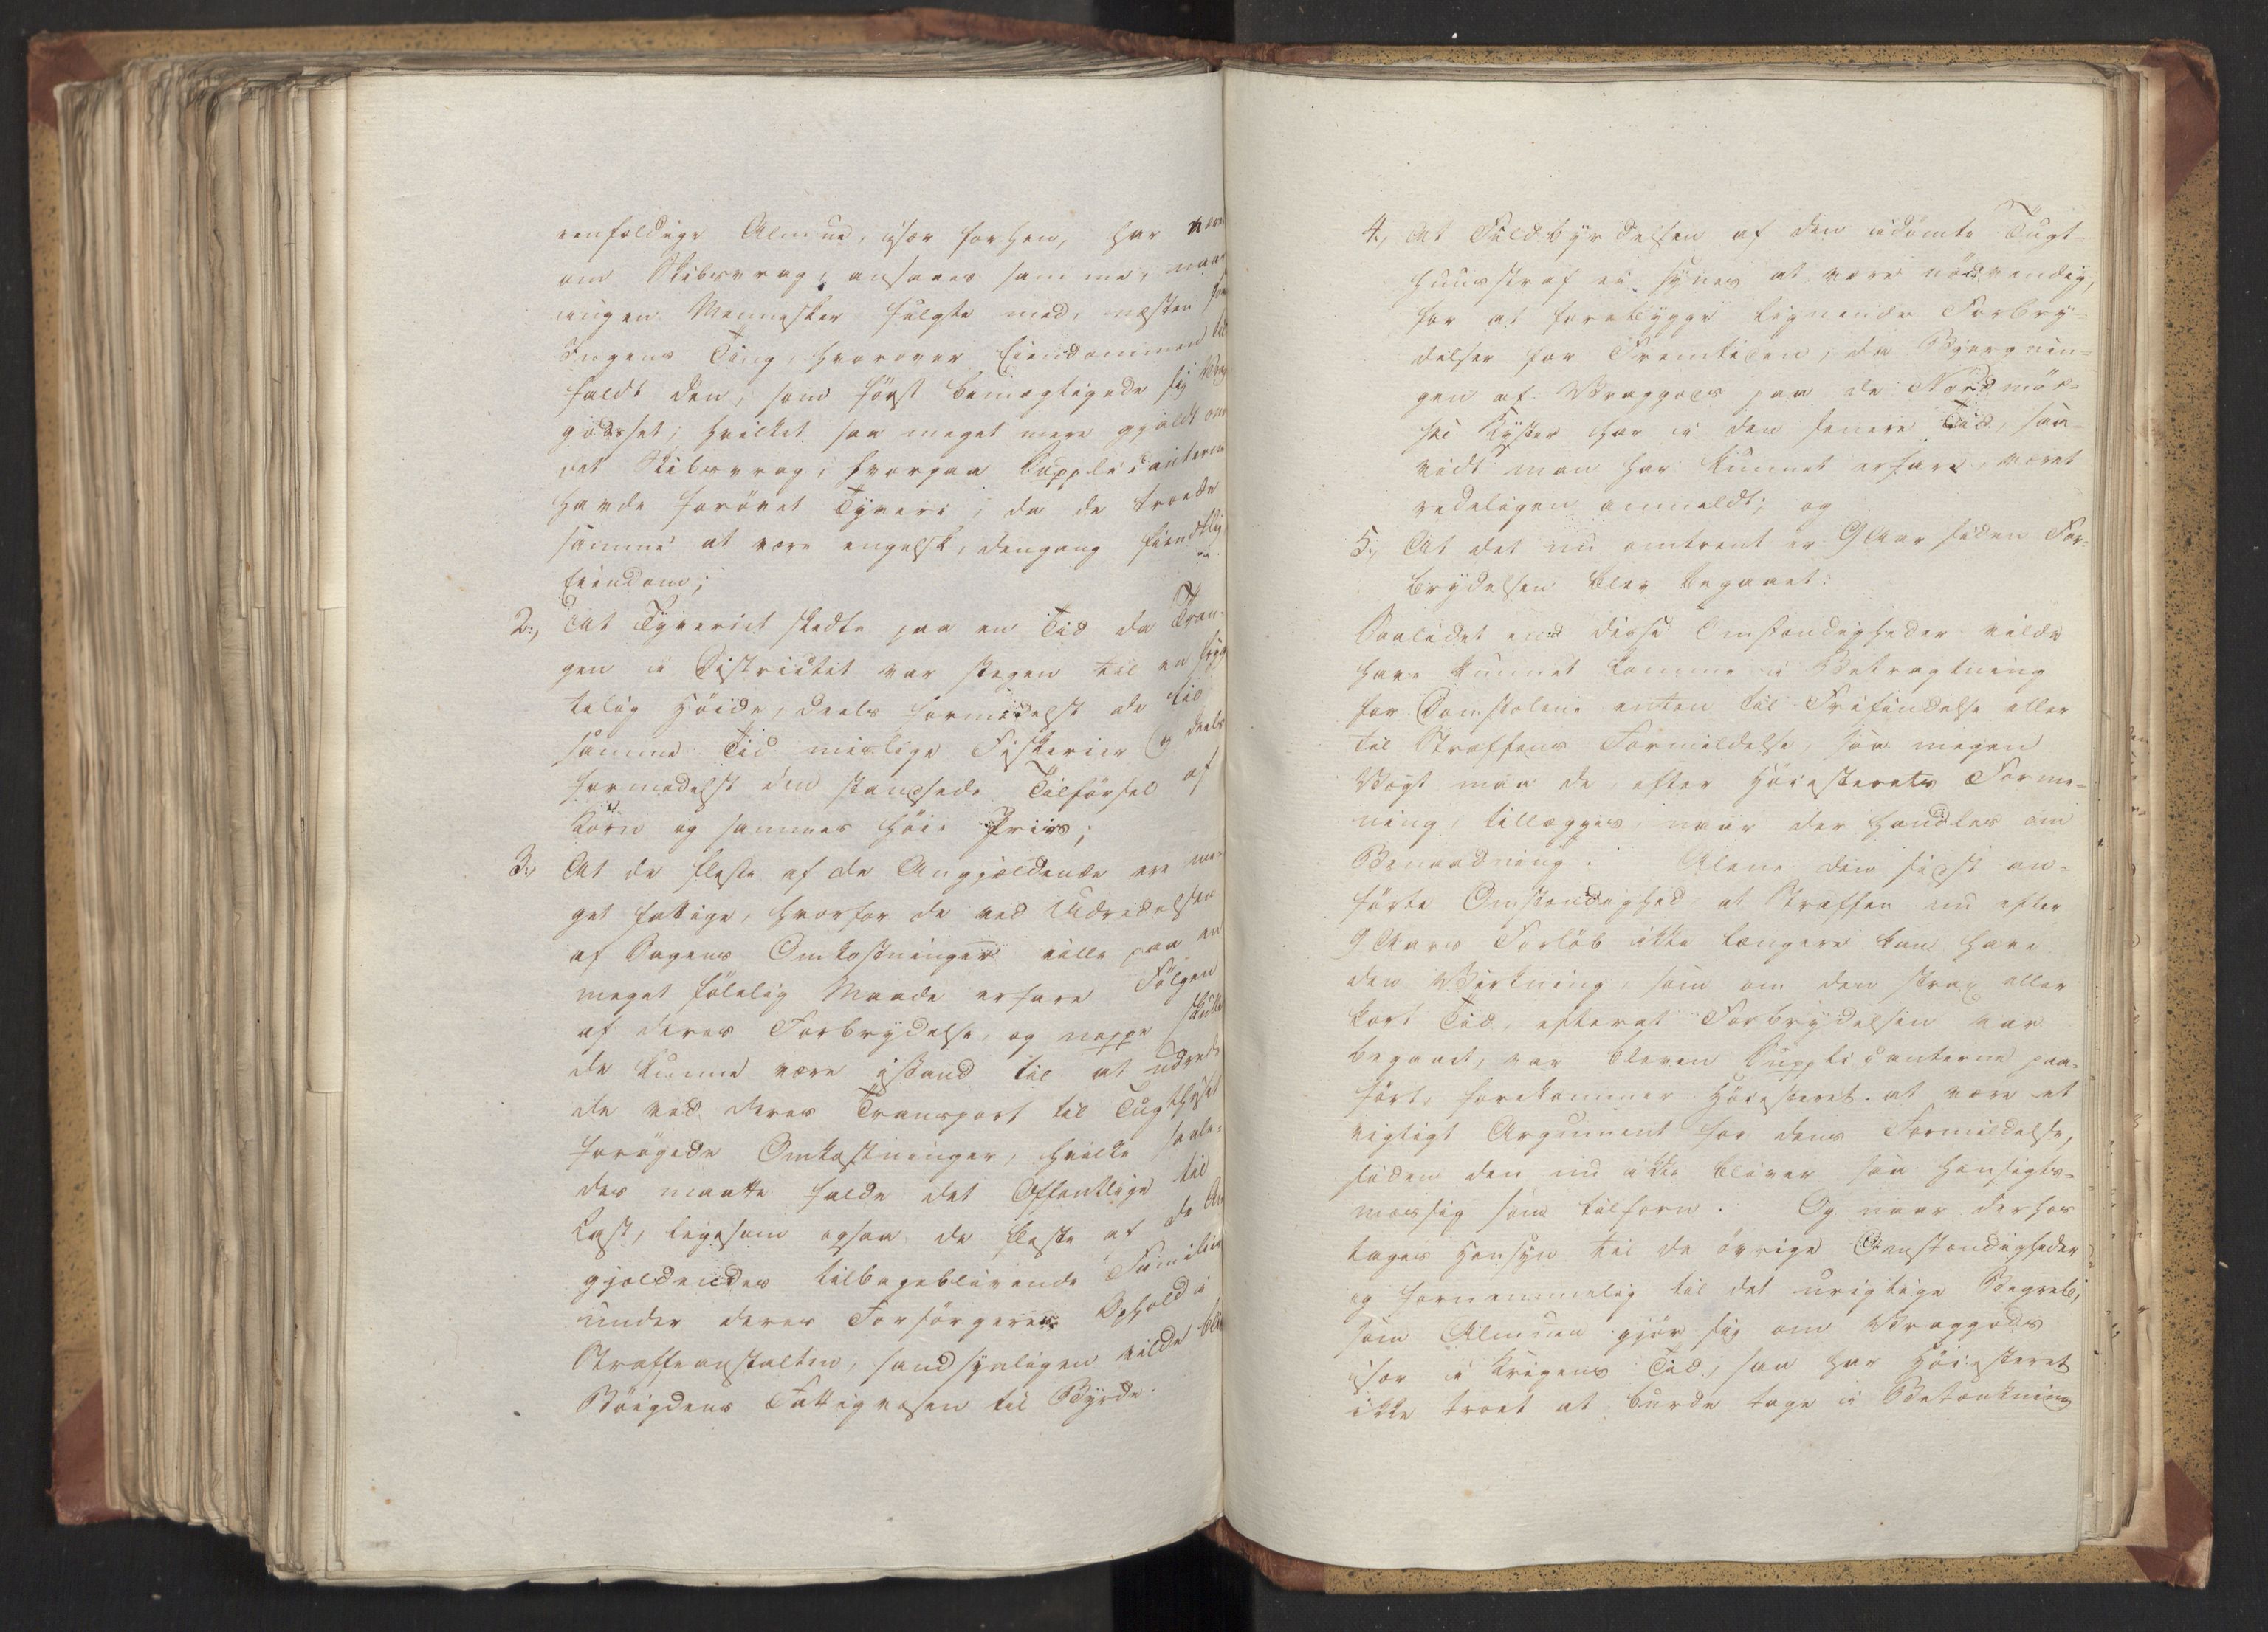 eenfoldige Almue, især forhen, har været
om Skibsvrag, ansaaes samme, naar
ingen Mennesker fulgte med, næsten som
Ingens Ting, hvorover Eiendommen til-
faldt den, som først bemægtigede sig Vrag-
godset; hvilket saa meget mere gjældt om
det Skibsvrag, hvorpaa Supplicanterne
havde forøvet Tyveri, da de troede
samme at være engelsk, dengang fiendtlig
Eiendom;
2., At Tyveriet skedte paa en Tid da Tran-
gen i Districtet var stegen til en fryg-
telig Høide, deels formedelst de til
samme Tid mislige Fiskerier og deels
formedelst den standsede Tilførsel af
Korn og sammes høie Priis;
3., At de fleste af de Angjældende ere me-
get fattige, hvorfor de ved Udredelsen
af Sagens Omkostninger ville paa en
meget følelig Maade erfare Følgen
af deres Forbrydelse, og neppe skulle
de kunne være istand til at udrede
de ved deres Transport til Tugthuset
forøgede Omkostninger, hvilke saale-
des maatte falde det Offentlige til
Last, ligesom ogsaa de fleste af de An-
gjældendes tilbageblivende Familier
under deres Forsørgeres Ophold i
Straffeanstalten, sandsynligen vilde blive
Bøigdens Fattigvæsen til Byrde.
4., At Fuldbyrdelsen af den idømte Tugt-
huusstraf ei synes at være nødvendig,
for at forebygge lignende Forbry-
delser for Fremtiden, da Bjergnin-
gen af Vraggods paa de Nordmør-
ske Kyster har i den senere Tid, saa-
vidt man har kunnet erfare, været
redeligen anmeldt; og
5., At det nu omtrent er 9 Aar siden For-
brydelsen blev begaaet.
Saalidet end disse Omstændigheder vilde
have kunnet komme i Betragtning
for Domstolene enten til Frifindelse eller
til Straffens Formildelse, saa megen
Vægt maa de, efter Høiesterets Forme-
ning, tillægges, naar der handles om
Benaadning. Alene den sidst an-
førte Omstændighed at Straffen nu efter
9 Aars Forløb ikke længere kan have
den Virkning, som om den strax eller
kort Tid, efterat Forbrydelsen var
begaaet, var bleven Supplicanterne paa-
ført, forekommer Høiesteret at være et
vigtigt Argument for dens Formildelse,
siden den nu ikke bliver saa hensigts-
mæssig som tilforn. Og naar derhos
tages Hensyn til de øvrige Omstændigheder
og fornemmelig til det urigtige Begreb,
som Almuen gjør sig om Vraggods
især i Krigens Tid, saa har Høiesteret
ikke troet at burde tage i Betænkning